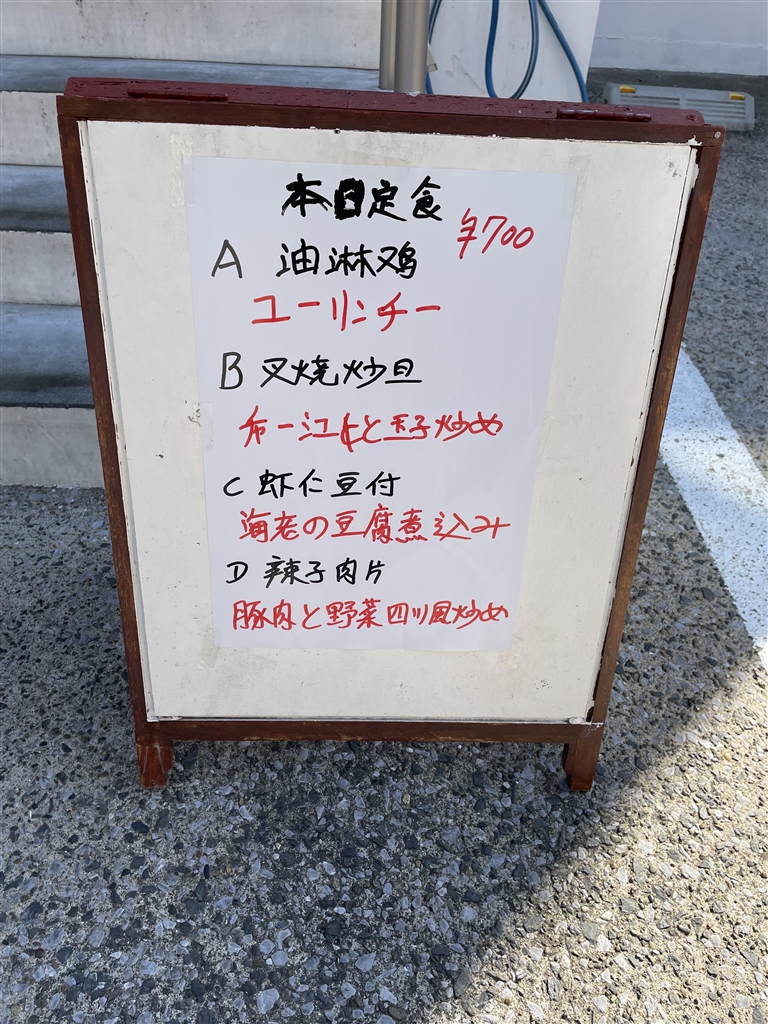 本日定食
¥700
A 油淋鸡
ユーリンチー
B 叉焼炒旦
チャーシューと玉子炒め
C 虾仁豆付
海老の豆腐煮込み
D 辣子肉片
豚肉と野菜四川風炒め